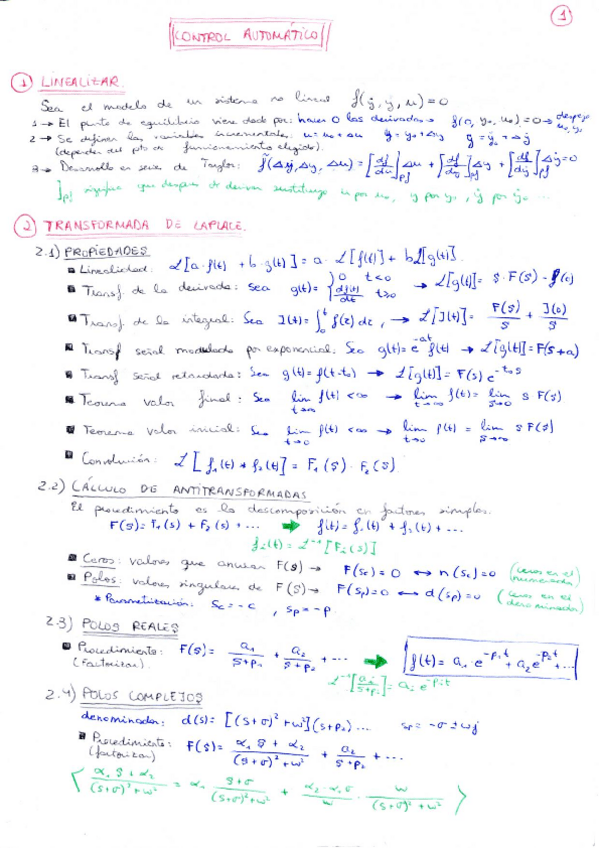 1
CONTROL AUTOMÁTICO
1 LINEALIZAR.
Sea el modelo de un sistema no lineal f(ẏ, y, u) = 0
1 → El punto de equilibrio viene dado por: hacer 0 las derivadas → f(0, y₀, u₀) = 0 → despejo u₀, y₀
2 → Se definen las variables incrementales: u = u₀ + Δu y = y₀ + Δy ẏ = ẏ₀ + Δẏ
(dependen del pto de funcionamiento elegido).
3 → Desarrollo en series de Taylor: f(Δẏ, Δy, Δu) = [df/du]pf Δu + [df/dy]pf Δy + [df/dẏ]pf Δẏ = 0
]pf significa que después de derivar sustituyo u por u₀, y por y₀, ẏ por ẏ₀ ...
2 TRANSFORMADA DE LAPLACE.
2.1) PROPIEDADES
▪ Linealidad: ℒ[a·f(t) + b·g(t)] = a·ℒ[f(t)] + bℒ[g(t)].
▪ Transf de la derivada: Sea g(t) = { 0 t<0 ; df(t)/dt t≥0 → ℒ[g(t)] = s·F(s) - f(0)
▪ Transf de la integral: Sea I(t) = ∫₀ᵗ f(τ) dτ, → ℒ[I(t)] = F(s)/s + I(0)/s
▪ Transf señal modulada por exponencial: Sea g(t) = e^-at f(t) → ℒ[g(t)] = F(s+a)
▪ Transf señal retardada: Sea g(t) = f(t-t₀) → ℒ[g(t)] = F(s) e^-t₀s
▪ Teorema valor final: Sea lim t→∞ f(t) < ∞ → lim t→∞ f(t) = lim s→0 s F(s)
▪ Teorema valor inicial: Sea lim t→0 f(t) < ∞ → lim t→0 f(t) = lim s→∞ s F(s)
▪ Convolución: ℒ[f₁(t) * f₂(t)] = F₁(s) · F₂(s)
2.2) CÁLCULO DE ANTITRANSFORMADAS
El procedimiento es la descomposición en factores simples.
F(s) = F₁(s) + F₂(s) + ... ➡ f(t) = f₁(t) + f₂(t) + ...
fᵢ(t) = ℒ⁻¹[Fᵢ(s)]
▪ Ceros: valores que anulan F(s) → F(sc) = 0 ↔ n(sc) = 0 (ceros en el numerador)
▪ Polos: valores singulares de F(s) → F(sp) = 0 ↔ d(sp) = 0 (ceros en el denominador)
* Parametrización: sc = -c, sp = -p.
2.3) POLOS REALES
▪ Procedimiento: F(s) = a₁/(s+p₁) + a₂/(s+p₂) + ... ➡ f(t) = a₁·e^-p₁t + a₂e^-p₂t + ...
(factorizar).
ℒ⁻¹[aᵢ/(s+pᵢ)] = aᵢ e^-pᵢt
2.4) POLOS COMPLEJOS
denominador: d(s) = [(s+σ)² + w²](s+p₂)... sp = -σ ± wj
▪ Procedimiento: F(s) = (α₁ s + α₂)/((s+σ)² + w²) + a₂/(s+p₂) + ...
(factorizar)
⟨ (α₁ s + α₂)/((s+σ)² + w²) = α₁ (s+σ)/((s+σ)² + w²) + (α₂ - α₁σ)/w · w/((s+σ)² + w²) ⟩